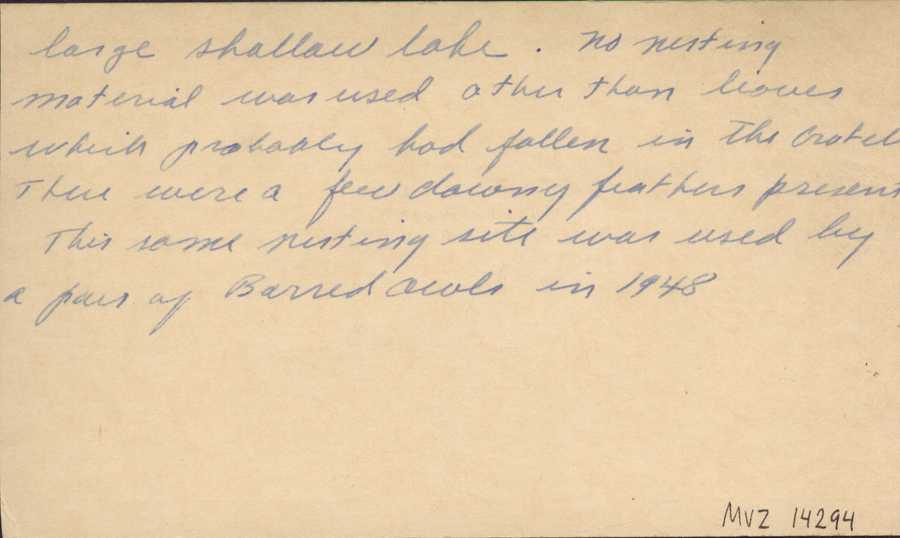 large shallow lake. No nesting
material was used other than leaves
which probably had fallen in the
There were a few downy feathers present
This same nesting site was used by
a pair of Barred Owls in 1948
MVZ 14294